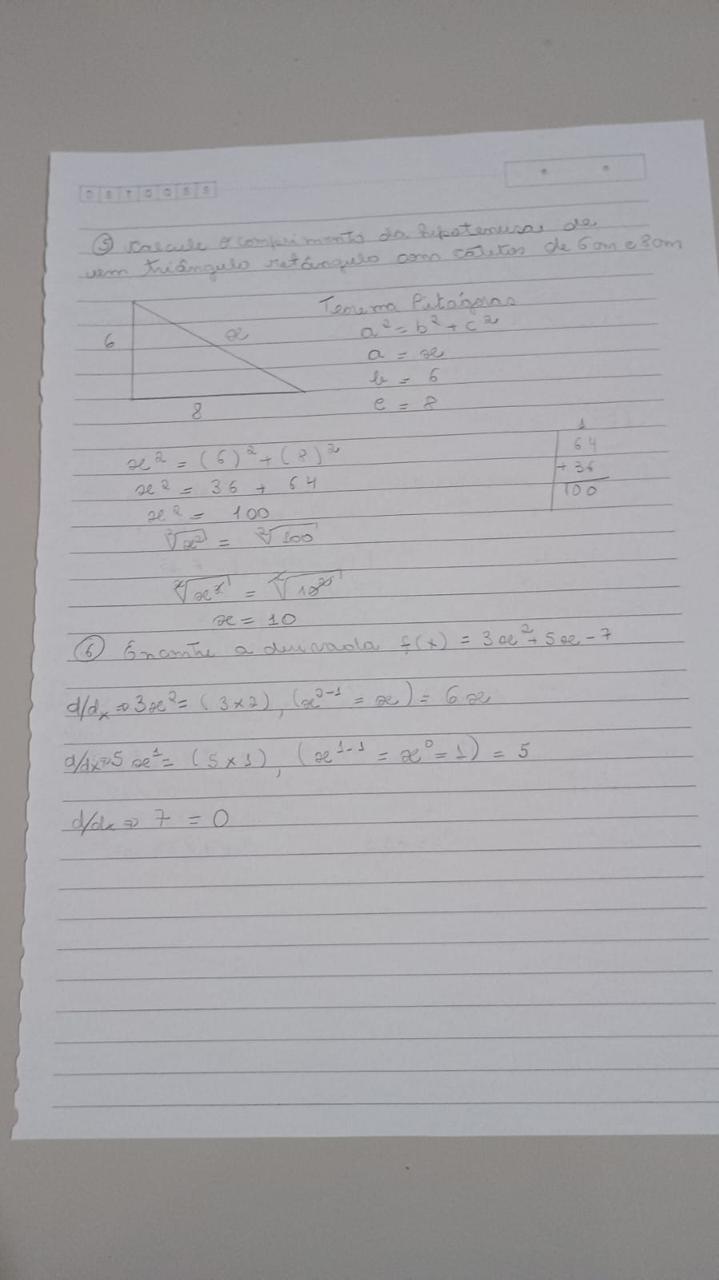 D S T Q Q S S
⑤ Calcule o comprimento da hipotenusa de
um triângulo retângulo com catetos de 6 cm e 8 cm
Teorema Pitágoras
a² = b² + c²
6
x
a = x
b = 6
8
c = 8
x² = (6)² + (8)²
1
64
x² = 36 + 64
+ 36
x² = 100
100
²√x² = ²√100
²√x² = ²√10²
x = 10
⑥ Encontre a derivada f(x) = 3x² + 5x - 7
d/dx ⇒ 3x² = (3x2), (x²⁻¹ = x) = 6x
d/dx ⇒ 5x¹ = (5x1), (x¹⁻¹ = x⁰ = 1) = 5
d/dx ⇒ 7 = 0